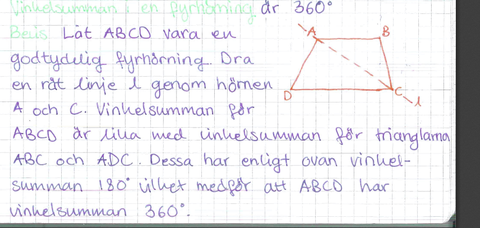 Vinkelsumman i en fyrhörning är 360°
Bevis Låt ABCD vara en
godtydelig fyrhörning Dra
en rät linje l genom hörnen
A och C. Vinkelsumman för
ABCD är lika med vinkelsumman för trianglarna
ABC och ADC. Dessa har enligt ovan vinkel-
summan 180° vilket medför att ABCD har
vinkelsumman 360°.
A
B
D
C
l